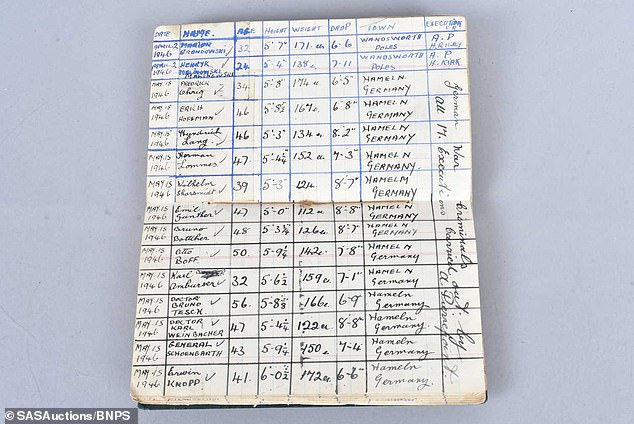 DATE NAME. AGE HEIGHT WEIGHT DROP TOWN EXECUTION
APRIL-2 1946 MARIAN GRONDOWSKI ✓ 32 5'7" 171 6-6 WANDSWORTH POLES A.P H.RILEY
APRIL-2 1946 HENRYK MALINOWSKI ✓ 24 5-4 138 7-11 WANDSWORTH POLES A.P H.KIRK
MAY 15 1946 34 5-8 174 6'5" HAMELN GERMANY
MAY 15 1946 ERICH HOFFMAN ✓ 46 5-8½ 167 6'8" HAMELN GERMANY
MAY 15 1946 Lang ✓ 46 5'3" 134 8'2" HAMELN GERMANY
MAY 15 1946 Lommes ✓ 47 5-4¼ 152 7-3" HAMELN GERMANY
MAY 15 1946 Wilhelm 39 5-3 121 8'7" HAMELN GERMANY
MAY 15 1946 Emil Gunther ✓ 47 5'-0" 112 8-8" HAMELN GERMANY
MAY 15 1946 Bruno Bottcher ✓ 48 126 8'-7" HAMELN GERMANY
MAY 15 1946 Otto BOFF ✓ 50. 142 7'8" HAMELN Germany
MAY 15 1946 Karl Amburger ✓ 32 5'-6½ 159 7-1" Hameln Germany
MAY 15 1946 DOCTOR BRUNO TESCH ✓ 56. 166 6-9" Hameln Germany
MAY 15 1946 DOCTOR KARL WEINBACHER ✓ 47 122 8-8" Hameln Germany.
MAY 15 1946 GENERAL SCHOENGARTH ✓ 43 150 7-4" Hameln Germany
MAY 15 1946 Erwin KNOPP ✓ 41. 6'-0½ 172 6-6" Hameln Germany.
German War Criminals
all 17. Executions carried out by
A. Pierrepoint
©SASAuctions/BNPS